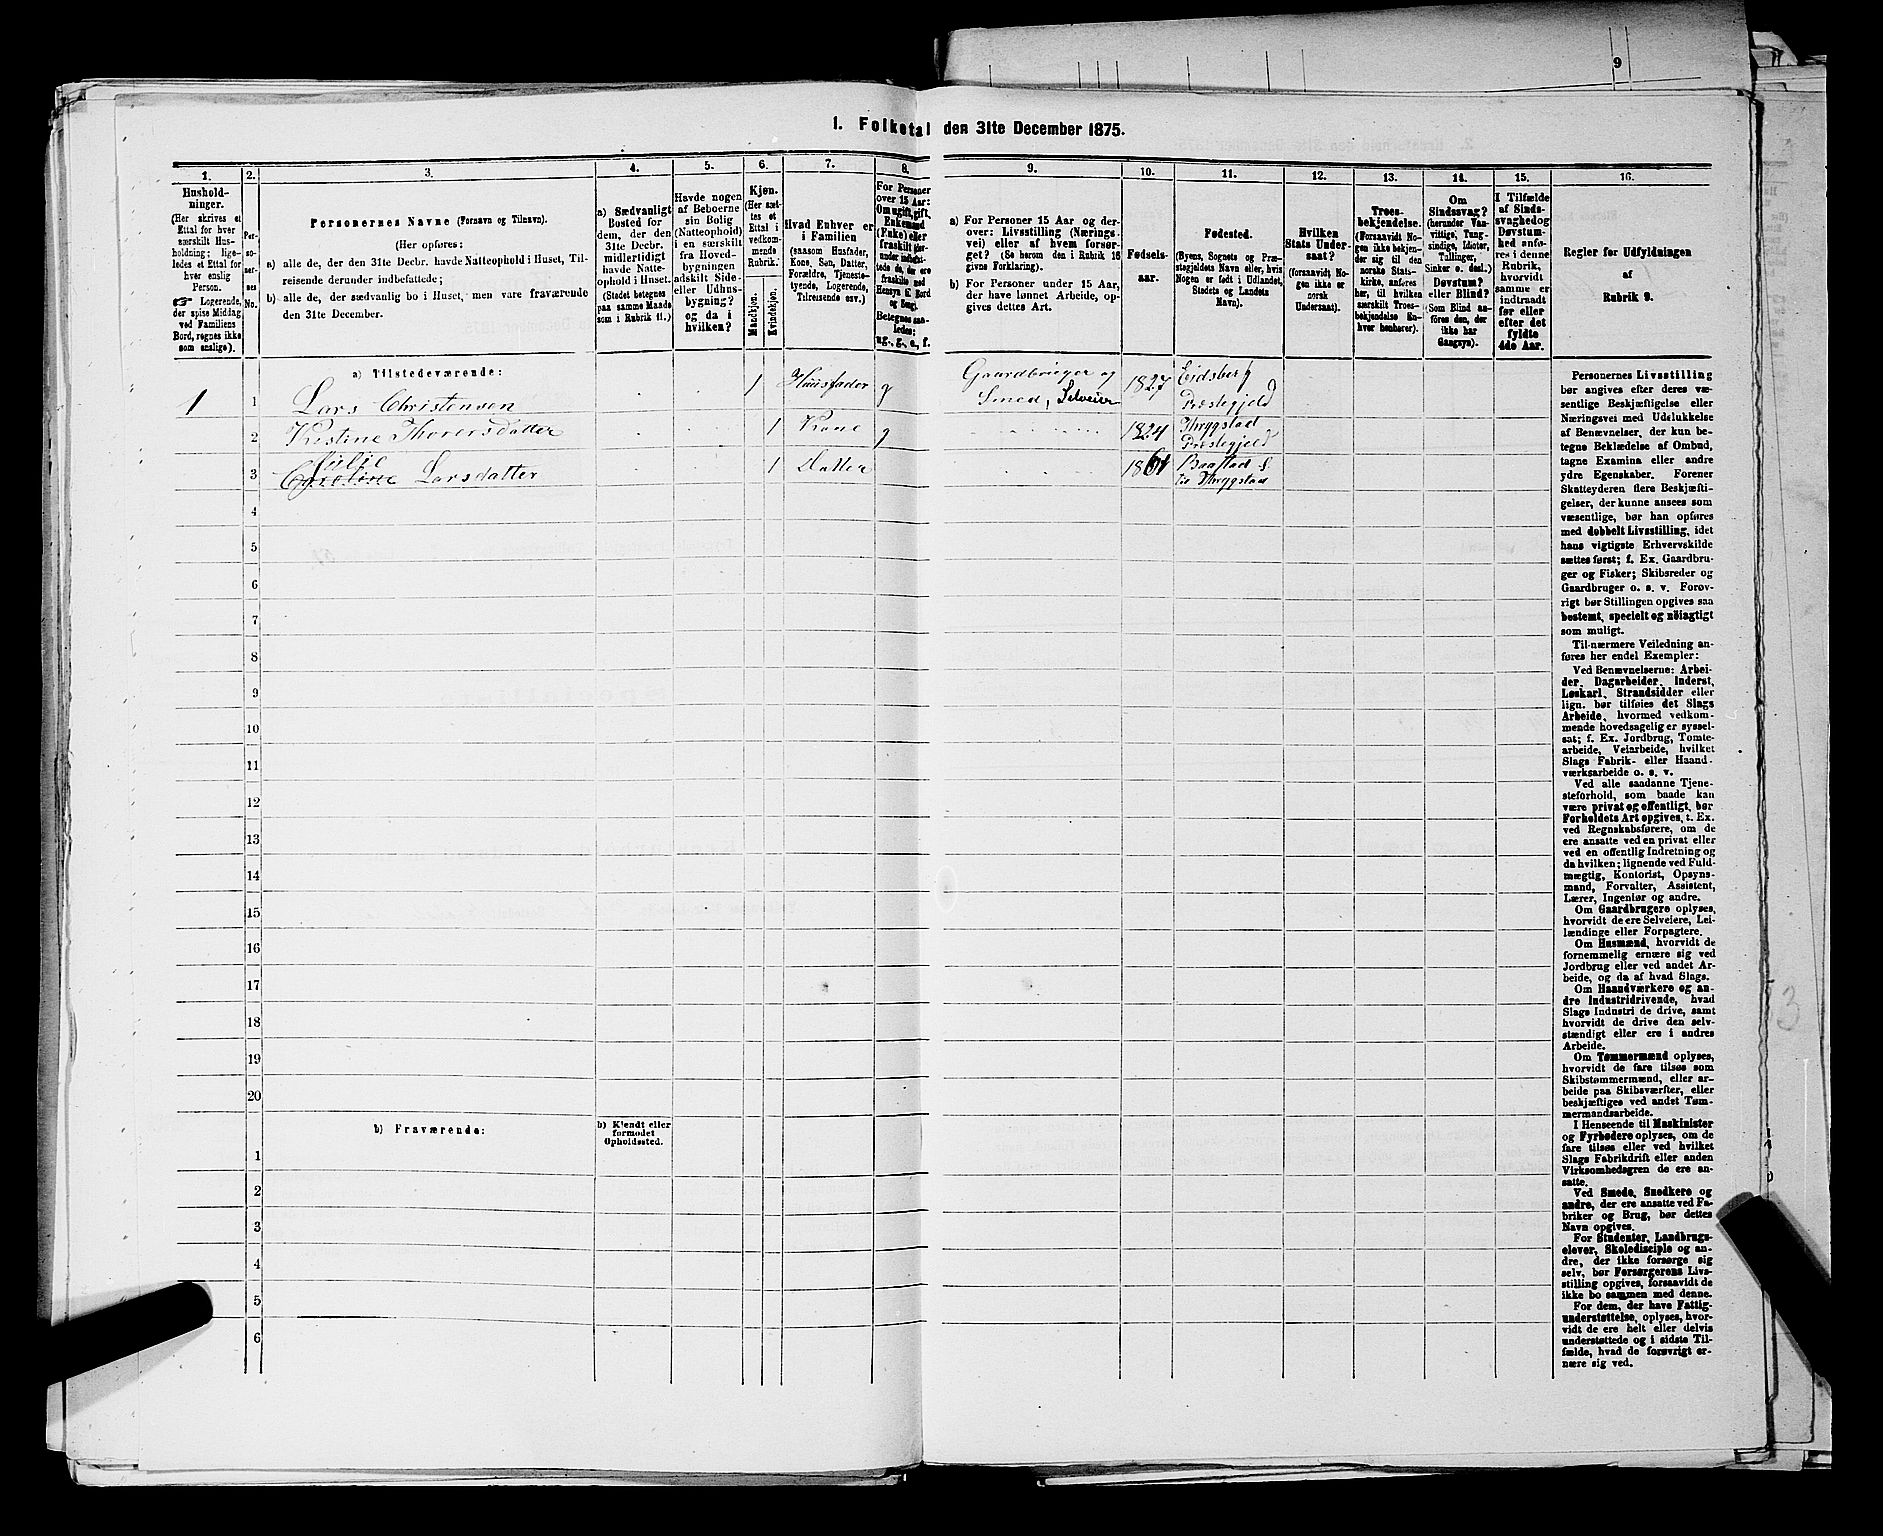 9
1. Folketal den 31te December 1875.
1.
2.
3.
4.
5.
6.
7.
8.
9.
10.
11.
12.
13.
14.
15.
16.
Hushold-
ninger.
(Her skrives et
Ettal for hver
særskilt Hus-
holdning; lige-
ledes et Ettal for
hver enslig
Person.
☞ Logerende,
der spise Middag
ved Familiens
Bord, regnes ikke
som enslige).
Per-
so-
ner-
nes
No.
Personernes Navne (Fornavn og Tilnavn).
(Her opføres:
a) alle de, der den 31te Decbr. havde Natteophold i Huset, Til-
reisende derunder indbefattede;
b) alle de, der sædvanlig bo i Huset, men vare fraværende
den 31te December.
a) Sædvanligt
Bosted for
dem, der den
31te Decbr.
midlertidigt
havde Natte-
ophold i Huset.
(Stedet betegnes
paa samme Maade
som i Rubrik 11.)
Havde nogen
af Beboerne
sin Bolig
(Natteophold)
i en særskilt
fra Hoved-
bygningen
adskilt Side-
eller Udhus-
bygning?
og da i
hvilken?
Kjøn.
(Her sæt-
tes et
Ettal i
vedkom-
mende
Rubrik.)
Mandkjøn.
Kvindekjøn.
Hvad Enhver er
i Familien
(saasom Husfader,
Kone, Søn, Datter,
Forældre, Tjeneste-
tyende, Logerende,
Tilreisende osv.)
For Personer
over 15 Aar:
Om ugift, gift,
Enkemand
(Enke) eller
fraskilt
Betegnes saa-
ledes:
ug., g., e., f.
a) For Personer 15 Aar og der-
over: Livsstilling (Nærings-
vei) eller af hvem forsør-
get? (Se herom den i Rubrik 16
givne Forklaring).
b) For Personer under 15 Aar,
der have lønnet Arbeide, op-
gives dettes Art.
Fødsels-
aar.
Fødested.
(Byens, Sognets og Præ-
stegjeldets Navn eller, hvis
Nogen er født i Udlandet,
Stedets og Landets
Navn).
Hvilken
Stats Under-
saat?
(forsaavidt No-
gen ikke er
norsk
Undersaat).
Troes-
bekjendelse.
(Forsaavidt No-
gen ikke bekjen-
der sig til den
norske Stats-
kirke, anføres
her, til hvilken
særskilt Troes-
bekjendelse En-
hver henhører).
Om
Sindssvag?
(herunder Van-
vittige, Tung-
sindige, Idioter,
Tullinger,
Sinker o. desl.)
Døvstum?
eller Blind?
(Som Blind an-
føres den, der
ikke har
Gangsyn).
I Tilfælde
af Sinds-
svaghed og
Døvstum-
hed anfø-
res i denne
Rubrik,
hvorvidt
samme er
indtraadt
før eller
efter det
fyldte
4de Aar.
Regler for Udfyldningen
af
Rubrik 9.
a) Tilstedeværende:
1 1 Lars Christensen 1 Huusfader g Gaardbruger og
Smed, Selveier 1827 Eidsberg
Præstegjeld
2 Kristine Thorersdatter 1 Kone g 1824 Thrygstad
Præstegjeld
Julie
3 Larsdatter 1 Datter 1861 Baastad S.
til Thrygstad
4
5
6
7
8
9
10
11
12
13
14
15
16
17
18
19
20
b) Fraværende:
b) Kjendt eller
formodet
Opholdssted.
1
2
3
4
5
6
Personernes Livsstilling
bør angives efter deres væ-
sentlige Beskjæftigelse eller
Næringsvei med Udelukkelse
af Benævnelser, der kun be-
tegne Beklædelse af Ombud,
tagne Examina eller andre
ydre Egenskaber. Forener
Skatteyderen flere Beskjæfti-
gelser, der kunne ansees som
væsentlige, bør han opføres
med dobbelt Livsstilling, idet
hans vigtigste Erhvervskilde
sættes først; f. Ex. Gaardbru-
ger og Fisker; Skibsreder og
Gaardbruger o. s. v. Forøv-
rigt bør Stillingen opgives saa
bestemt, specielt og nøiagtigt
som muligt.
Til nærmere Veiledning an-
føres her endel Exempler:
Ved Benævnelserne: Arbei-
der, Dagarbeider, Inderst,
Løskarl, Strandsidder eller
lign. bør tilføies det Slags
Arbeide, hvormed vedkom-
mende hovedsagelig er syssel-
sat; f. Ex. Jordbrug, Tomte-
arbeide, Veiarbeide, hvilket
Slags Fabrik- eller Haand-
værksarbeide o. s. v.
Ved alle saadanne Tjene-
steforhold, som baade kan
være privat og offentligt, bør
Forholdets Art opgives, t. Ex.
ved Regnskabsførere, om de
ere ansatte ved en privat eller
ved en offentlig Indretning og
da hvilken; lignende ved Fuld-
mægtig, Kontorist, Opsyns-
mand, Forvalter, Assistent,
Lærer, Ingeniør og andre.
Om Gaardbrugere oplyses,
hvorvidt de ere Selveiere, Lei-
lændinge eller Forpagtere.
Om Husmænd, hvorvidt de
fornemmelig ernære sig ved
Jordbrug eller ved andet Ar-
beide, og da af hvad Slags.
Om Haandværkere og an-
dre Industridrivende, hvad
Slags Industri de drive, samt
hvorvidt de drive den selv-
stændigt eller ere i andres
Arbeide.
Om Tømmermænd oplyses,
hvorvidt de fare tilsøs som
Skibstømmermænd, eller ar-
beide paa Skibsværfter, eller
beskjæftiges ved andet Tøm-
mermandsarbeide.
I Henseende til Maskinister
og Fyrbødere oplyses, om de
fare tilsøs eller ved hvilket
Slags Fabrikdrift eller anden
Virksomhedsgren de ere an-
satte.
Ved Smede, Snedkere og
andre, der ere ansatte ved Fa-
briker og Brug, bør dettes
Navn opgives.
For Studenter, Landbrugs-
elever, Skoledisciple og an-
dre, der ikke forsørge sig
selv, bør Forsørgerens Livs-
stilling opgives, forsaavidt de
ikke bo sammen med denne.
For dem, der have Fattig-
understøttelse, oplyses, hvor-
vidt de ere helt eller delvis
understøttede og i sidste Til-
fælde, hvad de forøvrigt er-
nære sig ved.
3